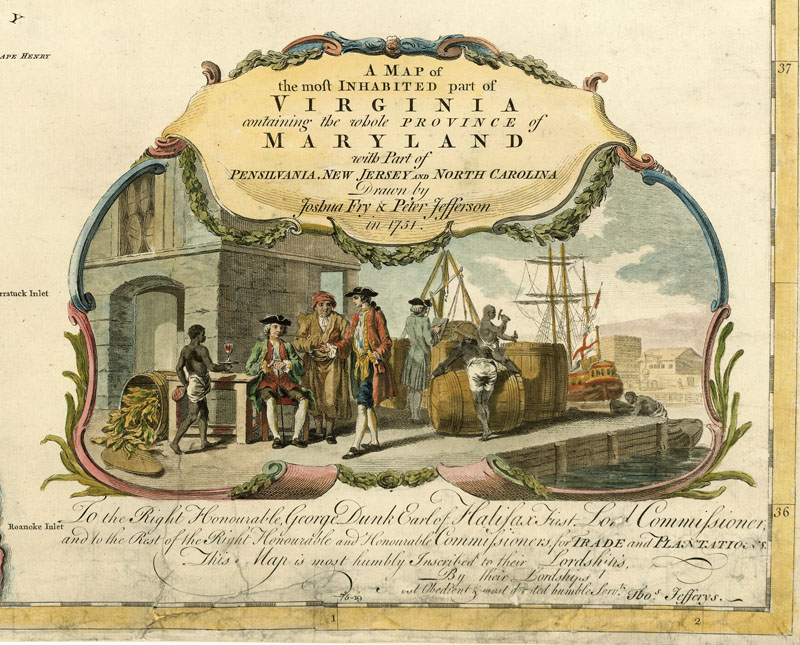 Y
APE HENRY
37
A MAP of
the most INHABITED part of
VIRGINIA
containing the whole PROVINCE of
MARYLAND
with Part of
PENSILVANIA, NEW JERSEY AND NORTH CAROLINA
Drawn by
Joshua Fry & Peter Jefferson
in 1751.
rratuck Inlet
36
Roanoke Inlet
To the Right Honourable, George Dunk Earl of Halifax First Lord Commissioner,
and to the Rest of the Right Honourable and Honourable Commissioners, for TRADE and PLANTATIONS,
This Map is most humbly Inscribed to their Lordships,
By their Lordships
Obedient & most humble Servts. Thos. Jefferys.
1
2